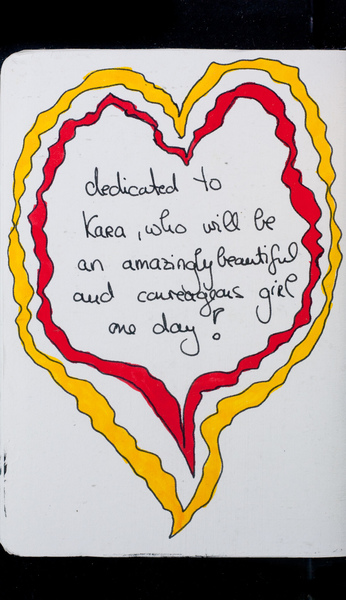 dedicated to
Kara, who will be
an amazingly beautiful
and coureageous girl
one day!